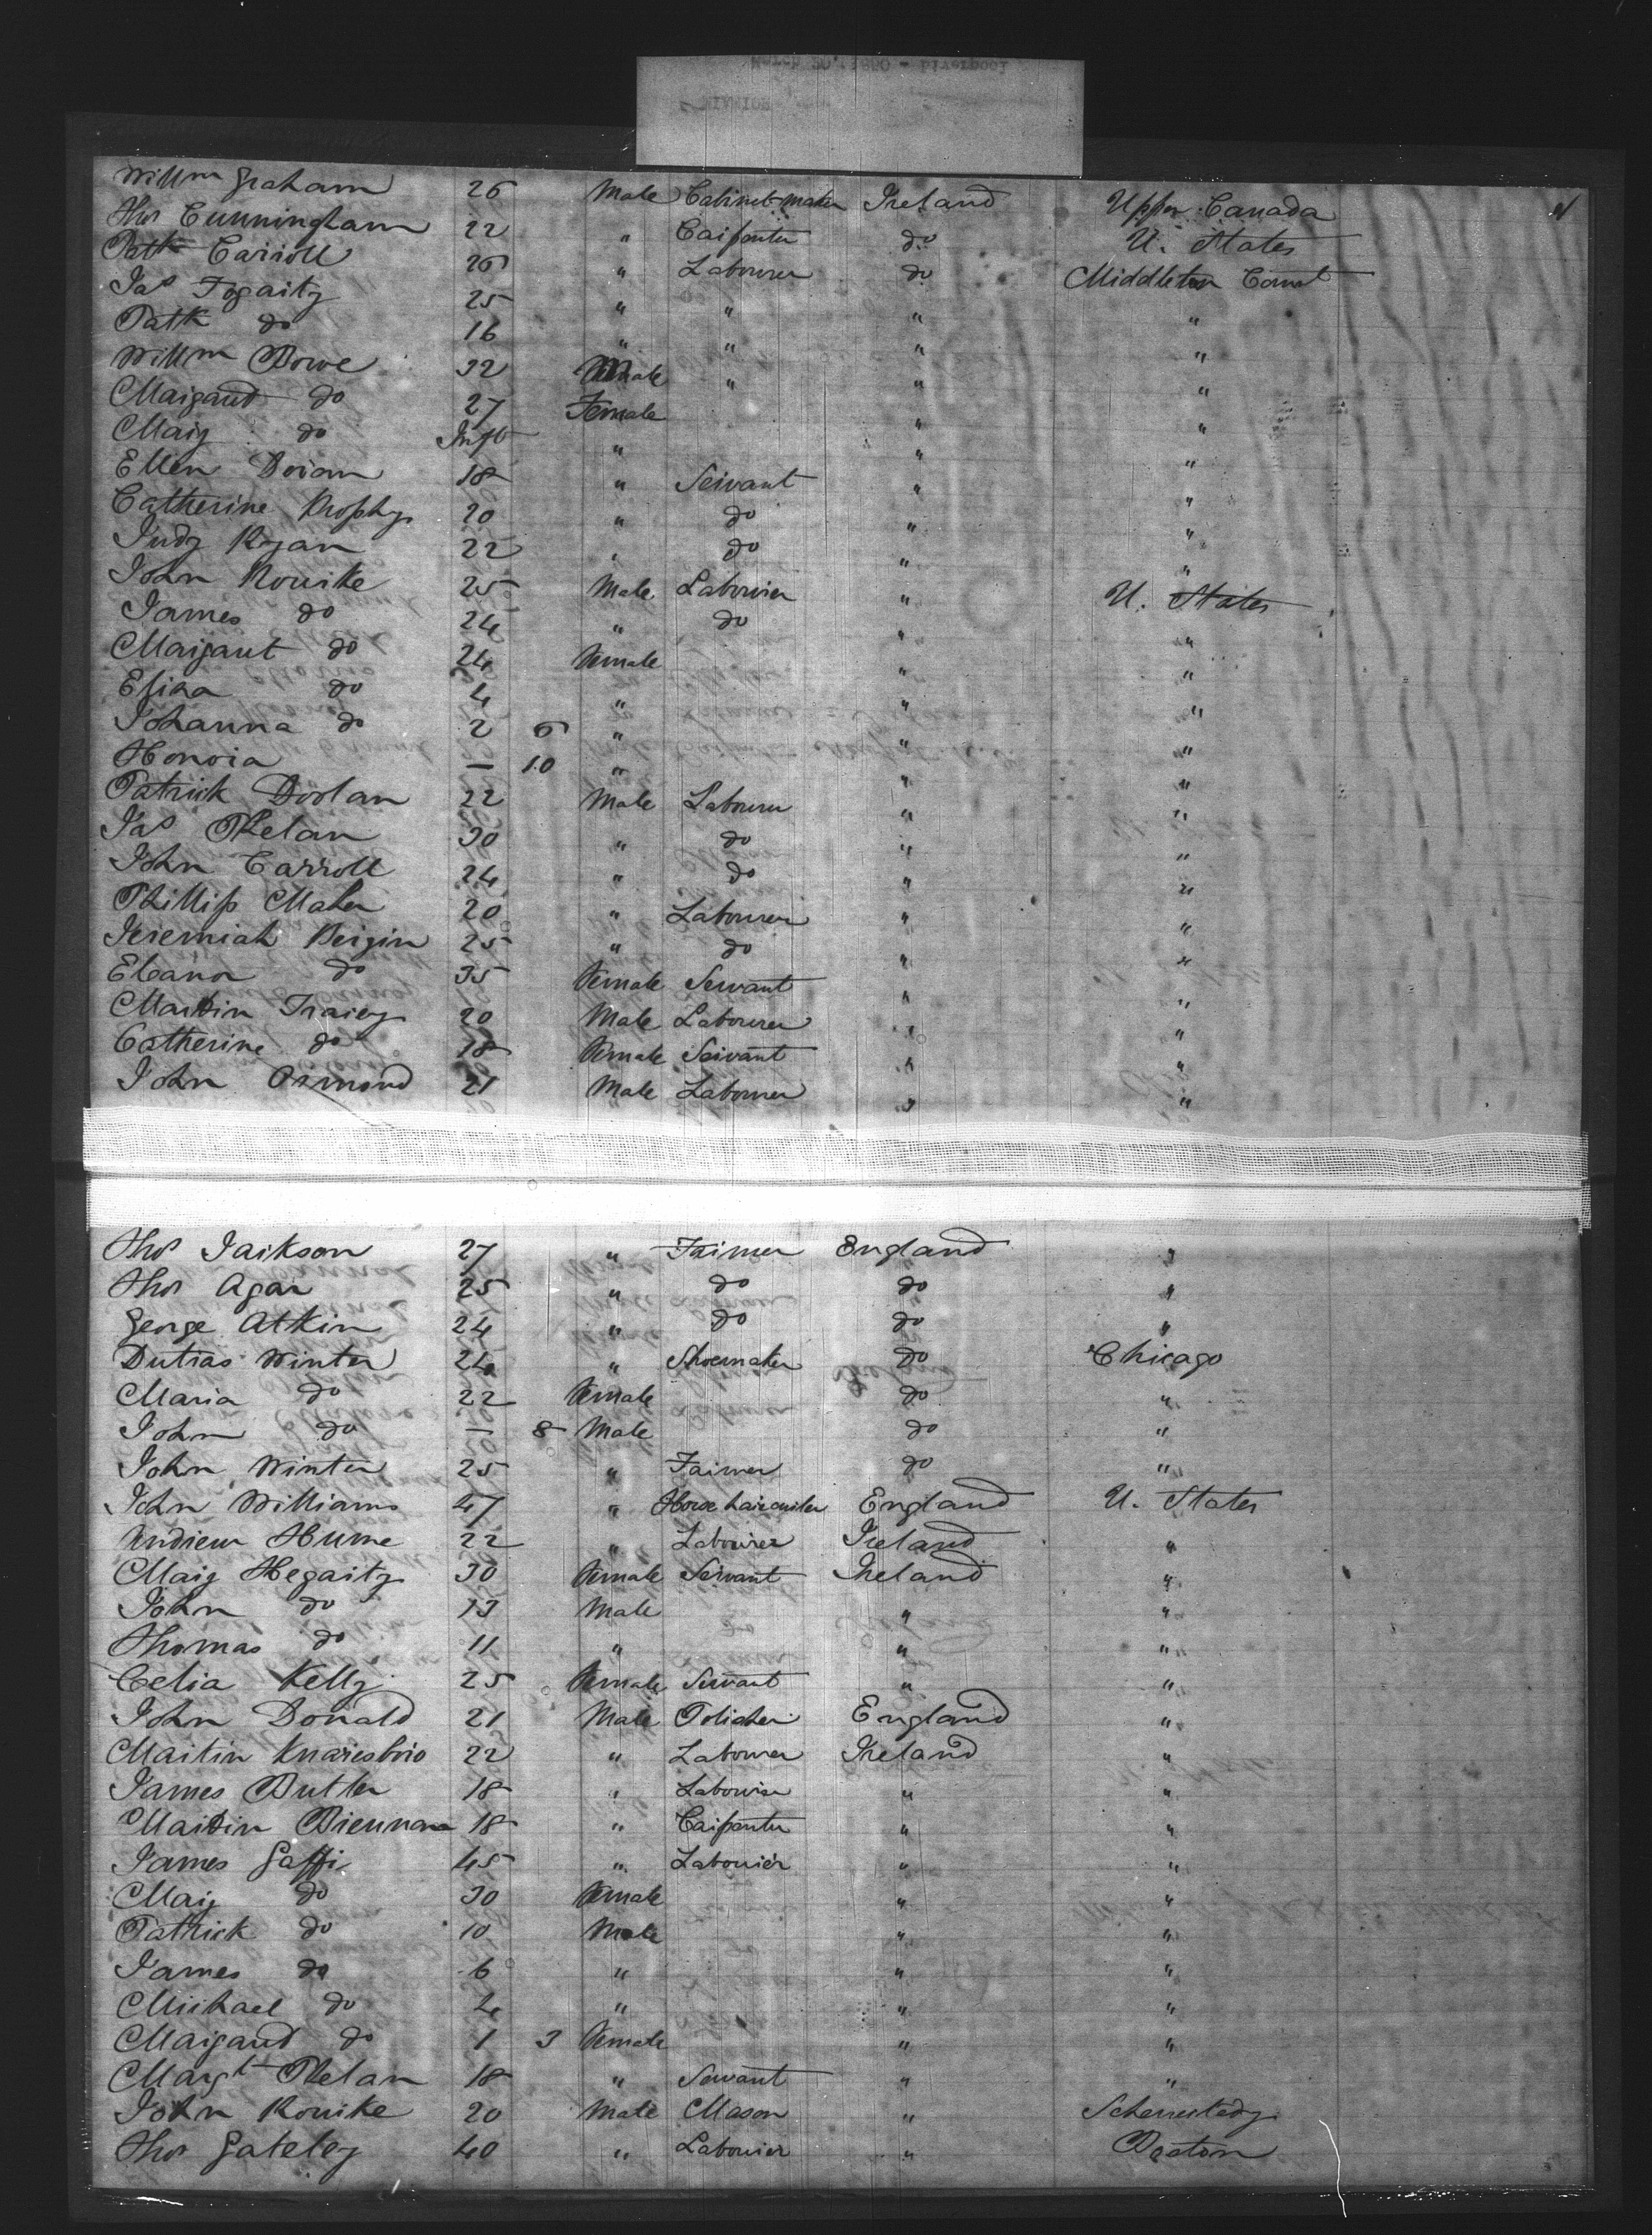 March 20, 1860 - Liverpool
Willm Graham 26 Male Cabinet maker Ireland Upper Canada
Thos Cunningham 22 " Carpenter do U. States
Patk Carroll 26 " Labourer do Middleton Connt
Jas Fogarty 25 " " " "
Patk do 16 " " " "
Willm Bowe 32 Male " " "
Margaret do 27 Female " "
Mary do Inft " " "
Ellen Doran 18 " Servant " "
Catherine Brophy 20 " do " "
Judy Ryan 22 " do " "
John Rourke 25 Male Labourer " U. States
James do 24 " do " "
Margaret do 24 Female " "
Eliza do 4 " " "
Johanna do 2 6 " " "
Honora — 10 " " "
Patrick Doolan 22 Male Labourer " "
Jas Phelan 30 " do " "
John Carroll 24 " do " "
Phillip Maher 20 " Labourer " "
Jeremiah Bergin 25 " do " "
Eleanor do 35 Female Servant " "
Martin Tracey 20 Male Labourer " "
Catherine do 18 Female Servant " "
John Ormond 21 Male Labourer " "
Thos Jackson 27 " Farmer England "
Thos Agar 25 " do do "
George Atkin 24 " do do "
Winter 24 " Shoemaker do Chicago
Maria do 22 Female do "
John do — 8 Male do "
John Winter 25 " Farmer do "
John Williams 47 " England U. States
Andrew Hume 22 " Labourer Ireland "
Mary Hegarty 30 Female Servant Ireland "
John do 13 Male " "
Thomas do 11 " " "
Celia Kelly 25 Female Servant " "
John Donald 21 Male Polisher England "
Martin Knaresbro 22 " Labourer Ireland "
James Butler 18 " Labourer " "
Martin Brennan 18 " Carpenter " "
James 45 " Labourer " "
Mary do 30 Female " "
Patrick do 10 Male " "
James do 6 " " "
Michael do 4 " " "
Margaret do 1 3 Female " "
Margt Phelan 18 " Servant " "
John Rourke 20 Male Mason " Schenectady
Thos Gateley 40 " Labourer " Boston